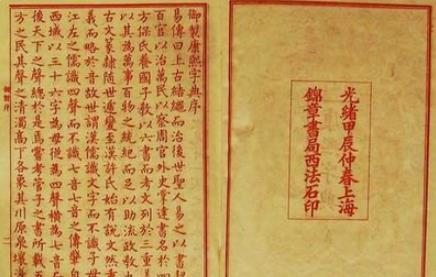 光緒甲辰仲春上海
錦章書局西法石印
御製康熙字典序
易傳曰上古結繩而治後世聖人易之以書
百官以治萬民以察周官外史掌達書名於四
方保氏養國子教以六書而考文列於三重
以其為萬事百物之統紀而足以助流政教
古文篆隸隨世遞變至漢許氏始有說文然重
義而略於音故世謂漢儒識文字而不識子母
江左之儒識四聲而不識七音七音之傳肇自
西域以三十六字為母從為四聲橫為七音
後天下之聲總於是焉嘗考管子之書所載五
方之民其聲之清濁高下各象其川原泉壤淺